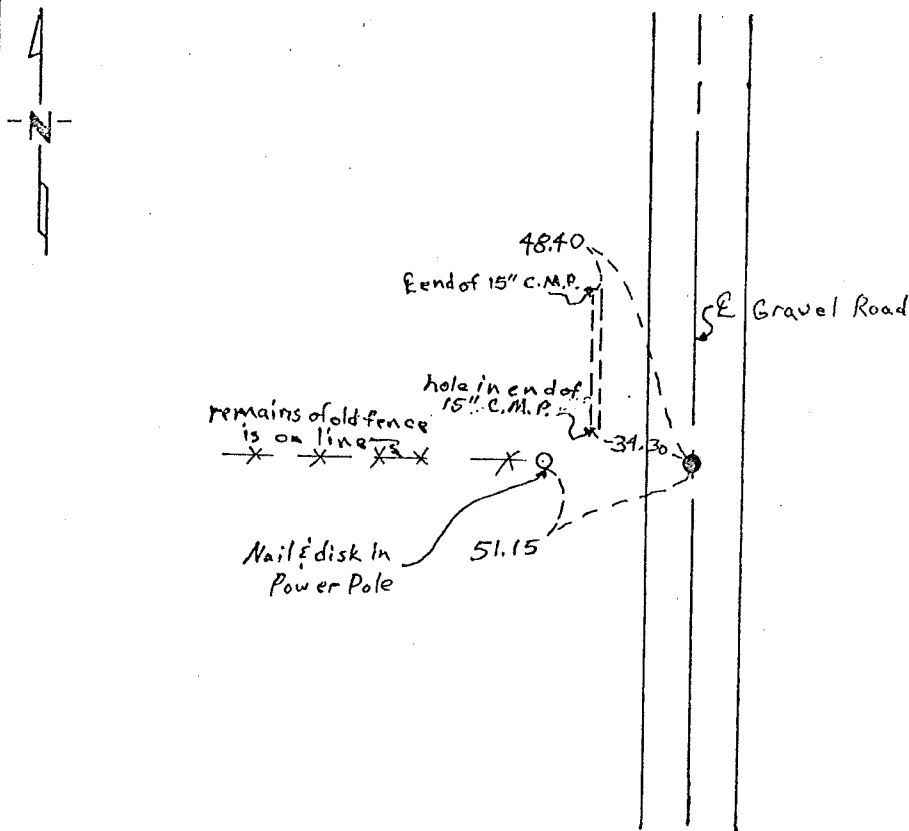 N
48.40
℄ end of 15" C.M.P.
℄ Gravel Road
hole in end of
15" C.M.P.
remains of old fence
is on line
34.30
51.15
Nail & disk in
Power Pole